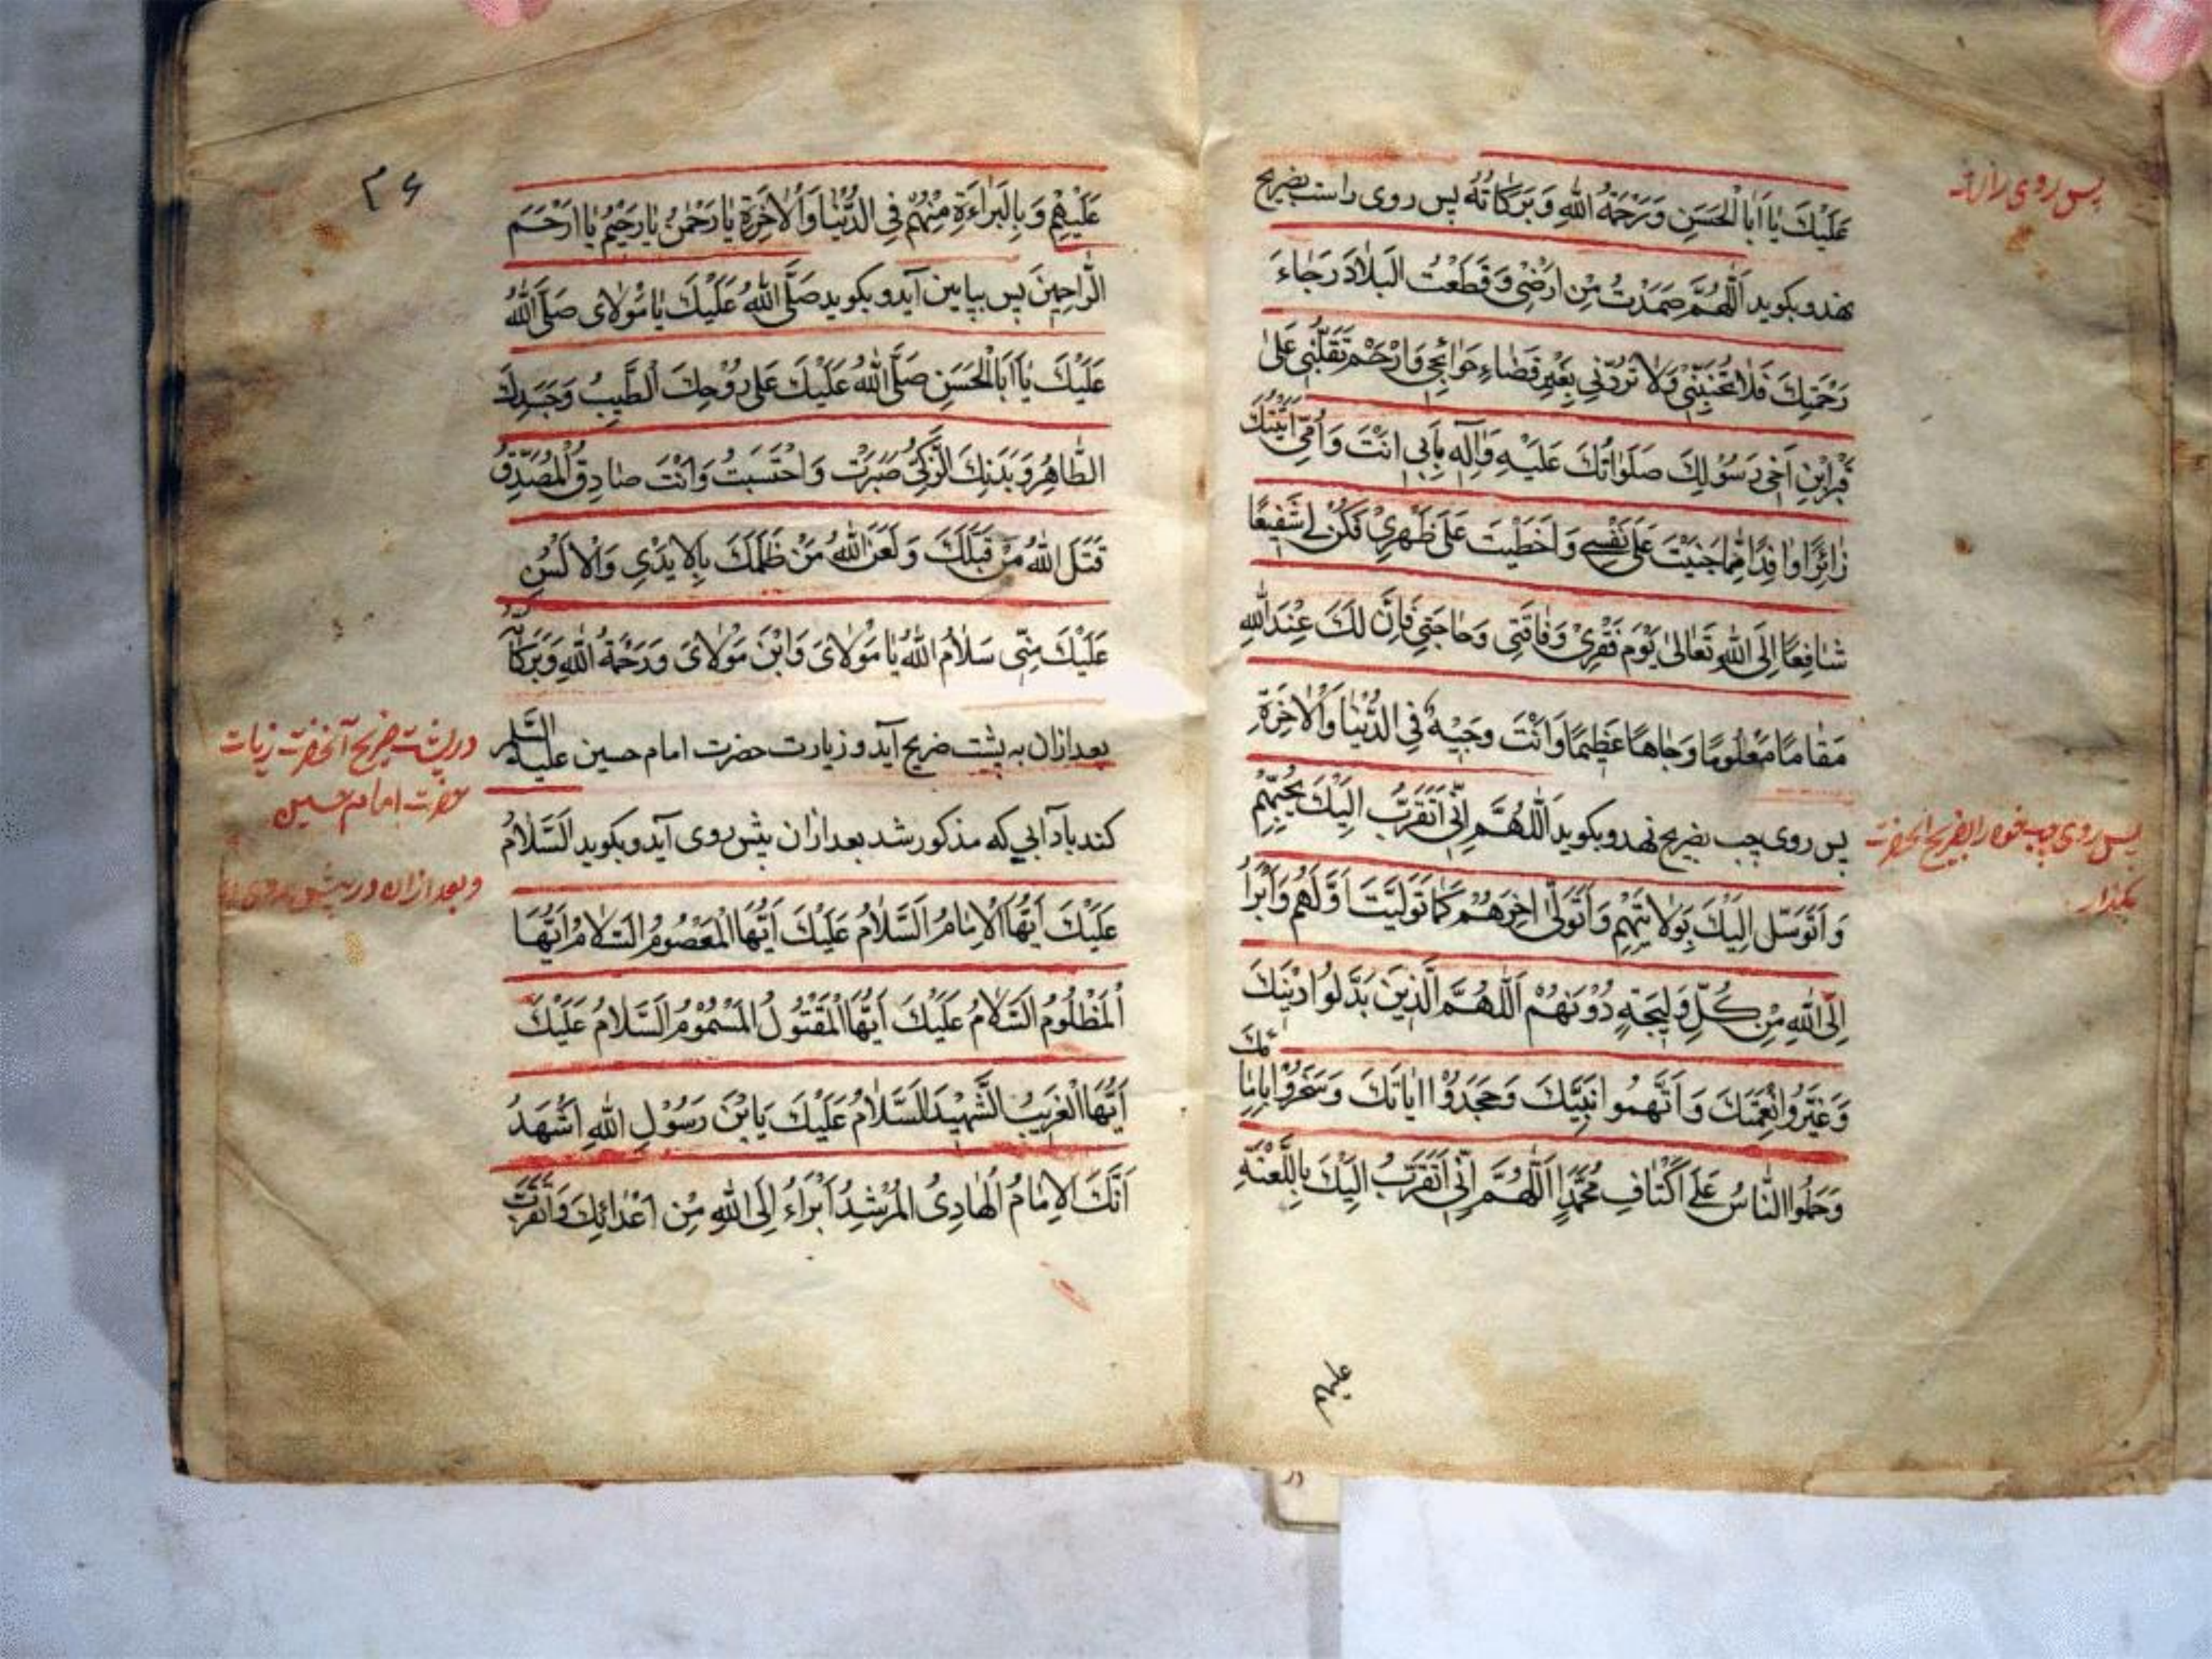 پس روی راست
عَلَيْكَ يٰا اَبَا الْحَسَنِ وَرَحْمَةُ اللهِ وَبَرَكاتُهُ پس روی راست بضریح
نهد و بکوید اَللّٰهُمَّ صَمَدْتُ مِنْ اَرْضٖى وَقَطَعْتُ الْبِلادَ رَجٰاءَ
رَحْمَتِكَ فَلا تُخَيِّبْنٖى وَلا تَرُدَّنٖى بِغَيْرِ قَضٰاءِ حَوٰائِجٖى وَارْحَمْ تَقَلُّبٖى عَلىٰ
قَبْرِ ابْنِ اَخٖى رَسُوْلِكَ صَلَوٰاتُكَ عَلَيْهِ وَاٰلِهٖ بِاَبٖى اَنْتَ وَاُمّٖى اَتَيْتُكَ
زٰائِرًا وٰافِدًا مِمّٰا جَنَيْتُ عَلىٰ نَفْسٖى وَاحْتَطَبْتُ عَلىٰ ظَهْرٖى فَكُنْ لٖى شَفٖيعًا
شٰافِعًا اِلَى اللهِ تَعٰالىٰ يَوْمَ فَقْرٖى وَفٰاقَتٖى وَحٰاجَتٖى فَاِنَّ لَكَ عِنْدَ اللهِ
مَقٰامًا مَعْلُومًا وَجٰاهًا عَظٖيمًا وَاَنْتَ وَجٖيهٌ فِى الدُّنْيٰا وَالْاٰخِرَةِ
پس روی چب بضریح نهد و بکوید اَللّٰهُمَّ اِنّٖى اَتَقَرَّبُ اِلَيْكَ بِحُبِّهِمْ
پس روی چب خود را بضریح آنحضرت
بکذار
وَاَتَوَسَّلُ اِلَيْكَ بِوَلايَتِهِمْ وَاَتَوَلّٰى اٰخِرَهُمْ كَمٰا تَوَلَّيْتُ اَوَّلَهُمْ وَاَبْرَأُ
اِلَى اللهِ مِنْ كُلِّ وَلٖيجَةٍ دُوْنَهُمْ اَللّٰهُمَّ الَّذٖينَ بَدَّلُوا دٖينَكَ
وَغَيَّرُوا نِعْمَتَكَ وَاتَّهَمُوا نَبِيَّكَ وَجَحَدُوْا اٰيٰاتِكَ وَسَخِرُوْا بِاِمٰامِكَ
وَحَمَلُوا النّٰاسَ عَلىٰ اَكْتٰافِ مُحَمَّدٍ اَللّٰهُمَّ اِنّٖى اَتَقَرَّبُ اِلَيْكَ بِاللَّعْنَةِ
علیهم
۴۶
عَلَيْهِمْ وَبِالْبَرٰاءَةِ مِنْهُمْ فِى الدُّنْيٰا وَالْاٰخِرَةِ يٰا رَحْمٰنُ يٰا رَحٖيمُ يٰا اَرْحَمَ
الرّٰاحِمٖينَ پس بپایین آید و بکوید صَلَّى اللهُ عَلَيْكَ يٰا مَوْلاىَ صَلَّى اللهُ
عَلَيْكَ يٰا اَبَا الْحَسَنِ صَلَّى اللهُ عَلَيْكَ عَلىٰ رُوْحِكَ الطَّيِّبِ وَجَسَدِكَ
الطّٰاهِرِ وَبَدَنِكَ الزَّكِىِّ صَبَرْتَ وَاحْتَسَبْتَ وَاَنْتَ صٰادِقُ الْمُصَدَّقُ
قَتَلَ اللهُ مَنْ قَتَلَكَ وَلَعَنَ اللهُ مَنْ ظَلَمَكَ بِالْاَيْدٖى وَالْاَلْسُنِ
عَلَيْكَ مِنّٖى سَلٰامُ اللهِ يٰا مَوْلاىَ وَابْنَ مَوْلاىَ وَرَحْمَةُ اللهِ وَبَرَكٰاتُهُ
بعد ازان به پشت ضریح آید و زیارت حضرت امام حسین علیه السلم
در پشت ضریح آنحضرت زیارت
حضرت امام حسین
کند بادآبی که مذکور شد بعد ازان پیش روی آید و بکوید اَلسَّلٰامُ
و بعد ازان در پیش روی
عَلَيْكَ اَيُّهَا الْاِمٰامُ اَلسَّلٰامُ عَلَيْكَ اَيُّهَا الْمَعْصُومُ اَلسَّلٰامُ اَيُّهَا
الْمَظْلُومُ اَلسَّلٰامُ عَلَيْكَ اَيُّهَا الْمَقْتُولُ الْمَسْمُوْمُ اَلسَّلٰامُ عَلَيْكَ
اَيُّهَا الْغَرٖيبُ الشَّهٖيدُ اَلسَّلٰامُ عَلَيْكَ يَابْنَ رَسُوْلِ اللهِ اَشْهَدُ
اَنَّكَ الْاِمٰامُ الْهٰادِى الْمُرْشِدُ اَبْرَاءُ اِلَى اللهِ مِنْ اَعْدٰائِكَ وَاَتَقَرَّبُ